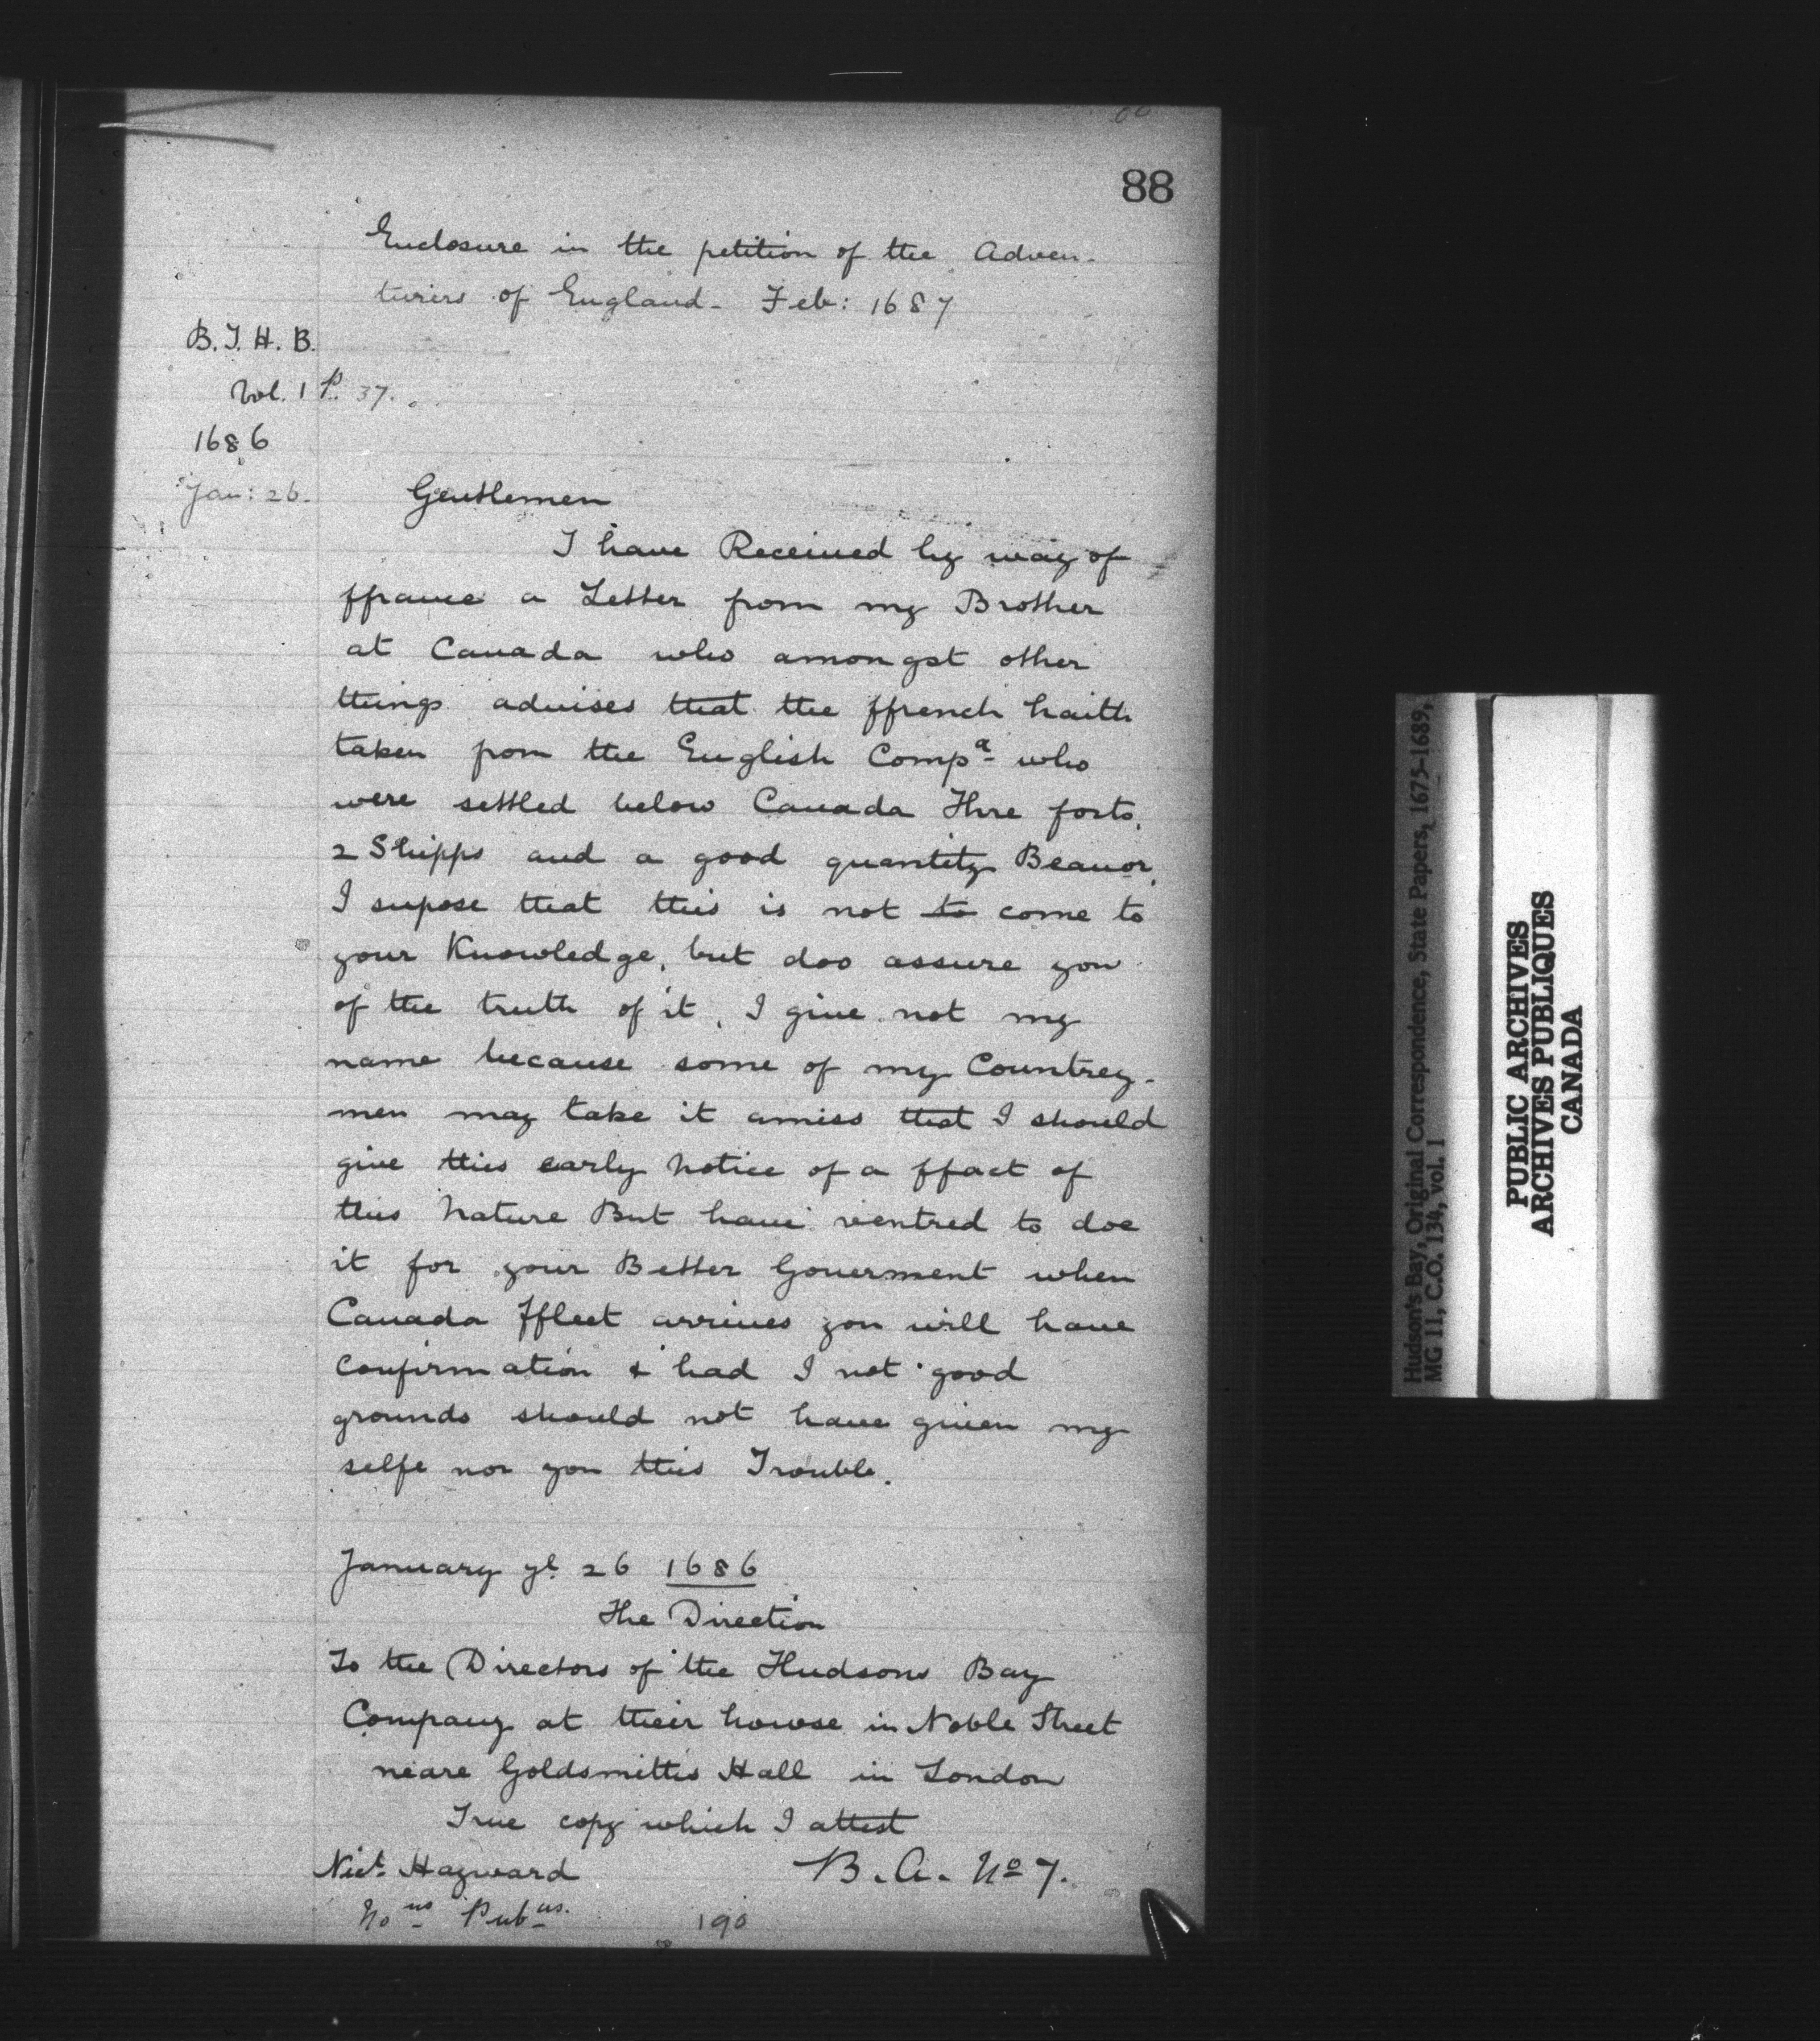 88
Enclosure in the petition of the Adven-
turers of England - Feb: 1687
B.T.H.B.
Vol. 1 P. 37.
1686
Jan: 26.
Gentlemen
I have Received by way of
ffrance a Letter from my Brother
at Canada who amongst other
things advises that the ffrench haith
taken from the English Compa who
were settled below Canada Thre forts,
2 Shipps and a good quantity Beavor,
I supose that this is not to come to
your Knowledge, but doo assure you
of the truth of it, I give not my
name because some of my Countrey-
men may take it amiss that I should
give this early notice of a ffact of
this Nature But have ventred to doe
it for your Better Goverment when
Canada ffleet arrives you will have
Confirmation & had I not good
grounds should not have given my
selfe nor you this Trouble.
January ye 26 1686
The Direction
To the Directors of the Hudsons Bay
Company at their howse in Noble Street
neare Goldsmiths Hall in London
True copy which I attest
Nich. Hayward
B.A. No 7.
Nous Pubus.
190
Hudson's Bay, Original Correspondence, State Papers, 1675-1689,
MG 11, C.O. 134, vol. 1
PUBLIC ARCHIVES
ARCHIVES PUBLIQUES
CANADA